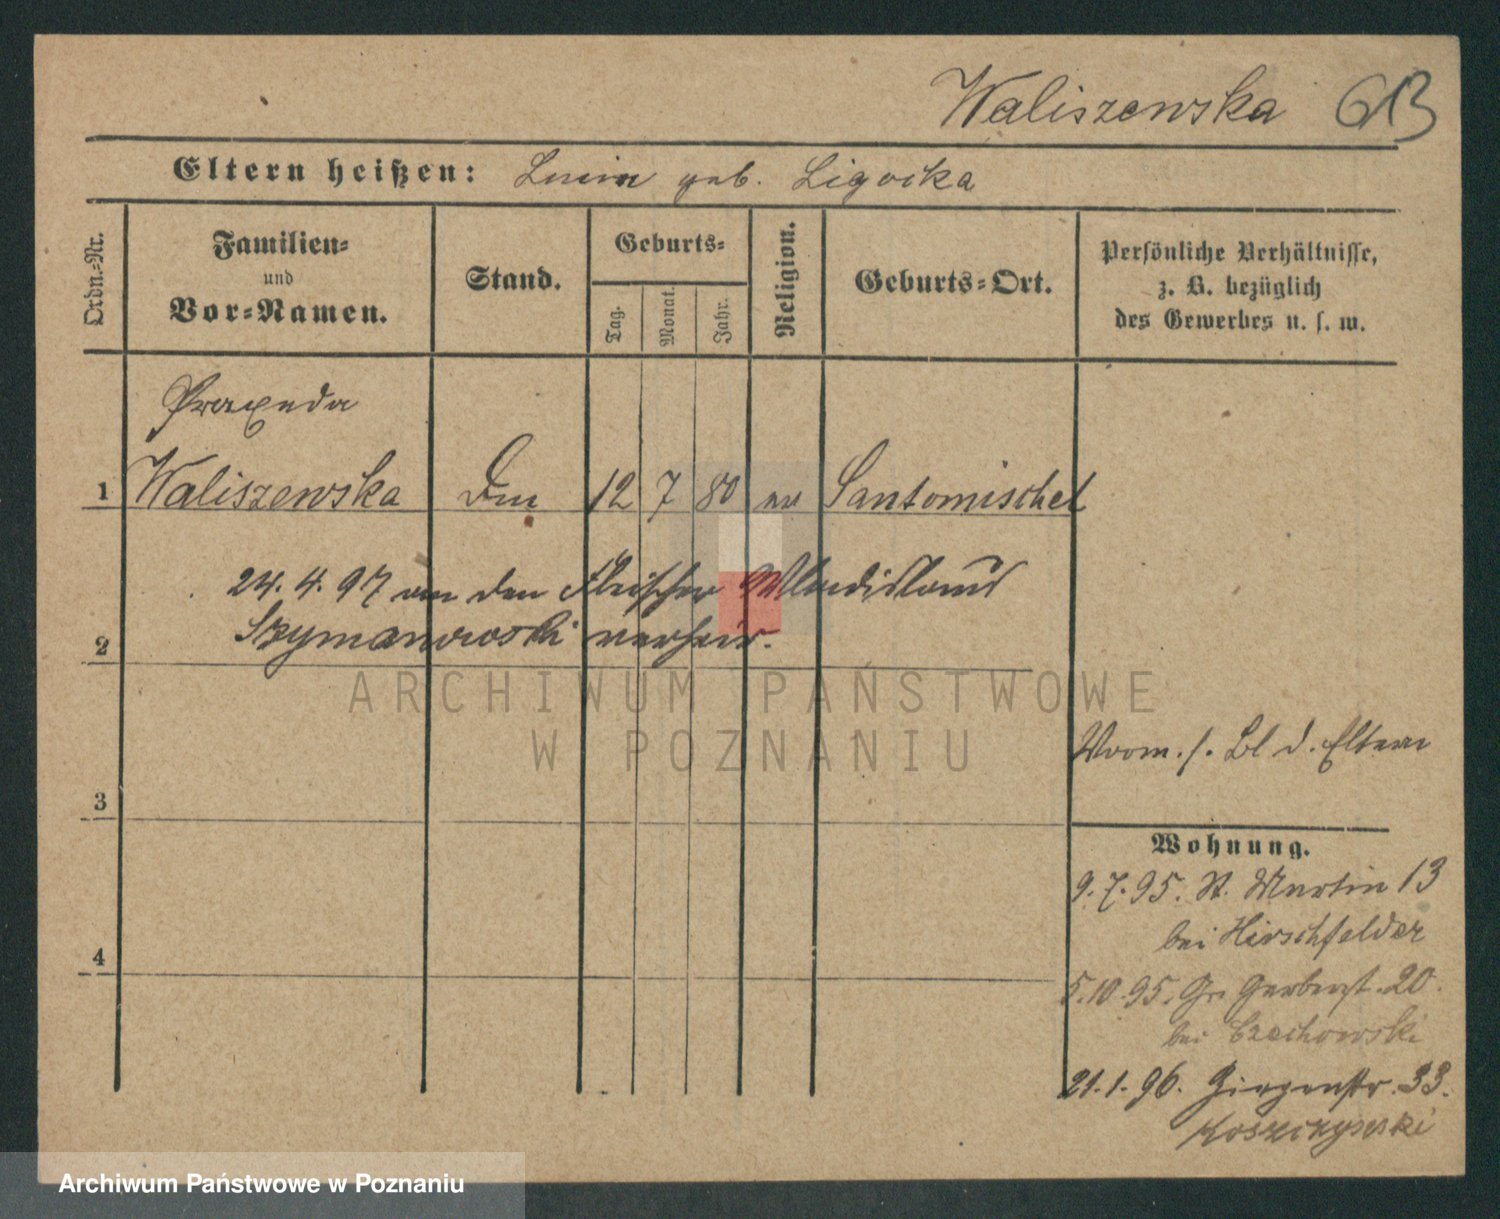 Waliszewska 613
Eltern heißen: Lucia geb. Ligocka
Ordn.-Nr.
Familien- und Vor-Namen.
Stand.
Geburts-
Tag.
Monat.
Jahr.
Religion.
Geburts-Ort.
Persönliche Verhältnisse,
z. B. bezüglich
des Gewerbes u. s. w.
Praxeda
1 Waliszewska 12 7 80 Santomischel
24. 4. 97 an den Fleischer Wladislaus
2 Szymanowski verheir.
ARCHIWUM PAŃSTWOWE
W POZNANIU
Bl d. Eltern
3
Wohnung.
9. 7. 95. St. Martin 13
bei Hirschfelder
4
5. 10. 95. Gr. Gerberst. 20.
bei Czechowski
21. 1. 96. Ziegenstr. 33.
Archiwum Państwowe w Poznaniu